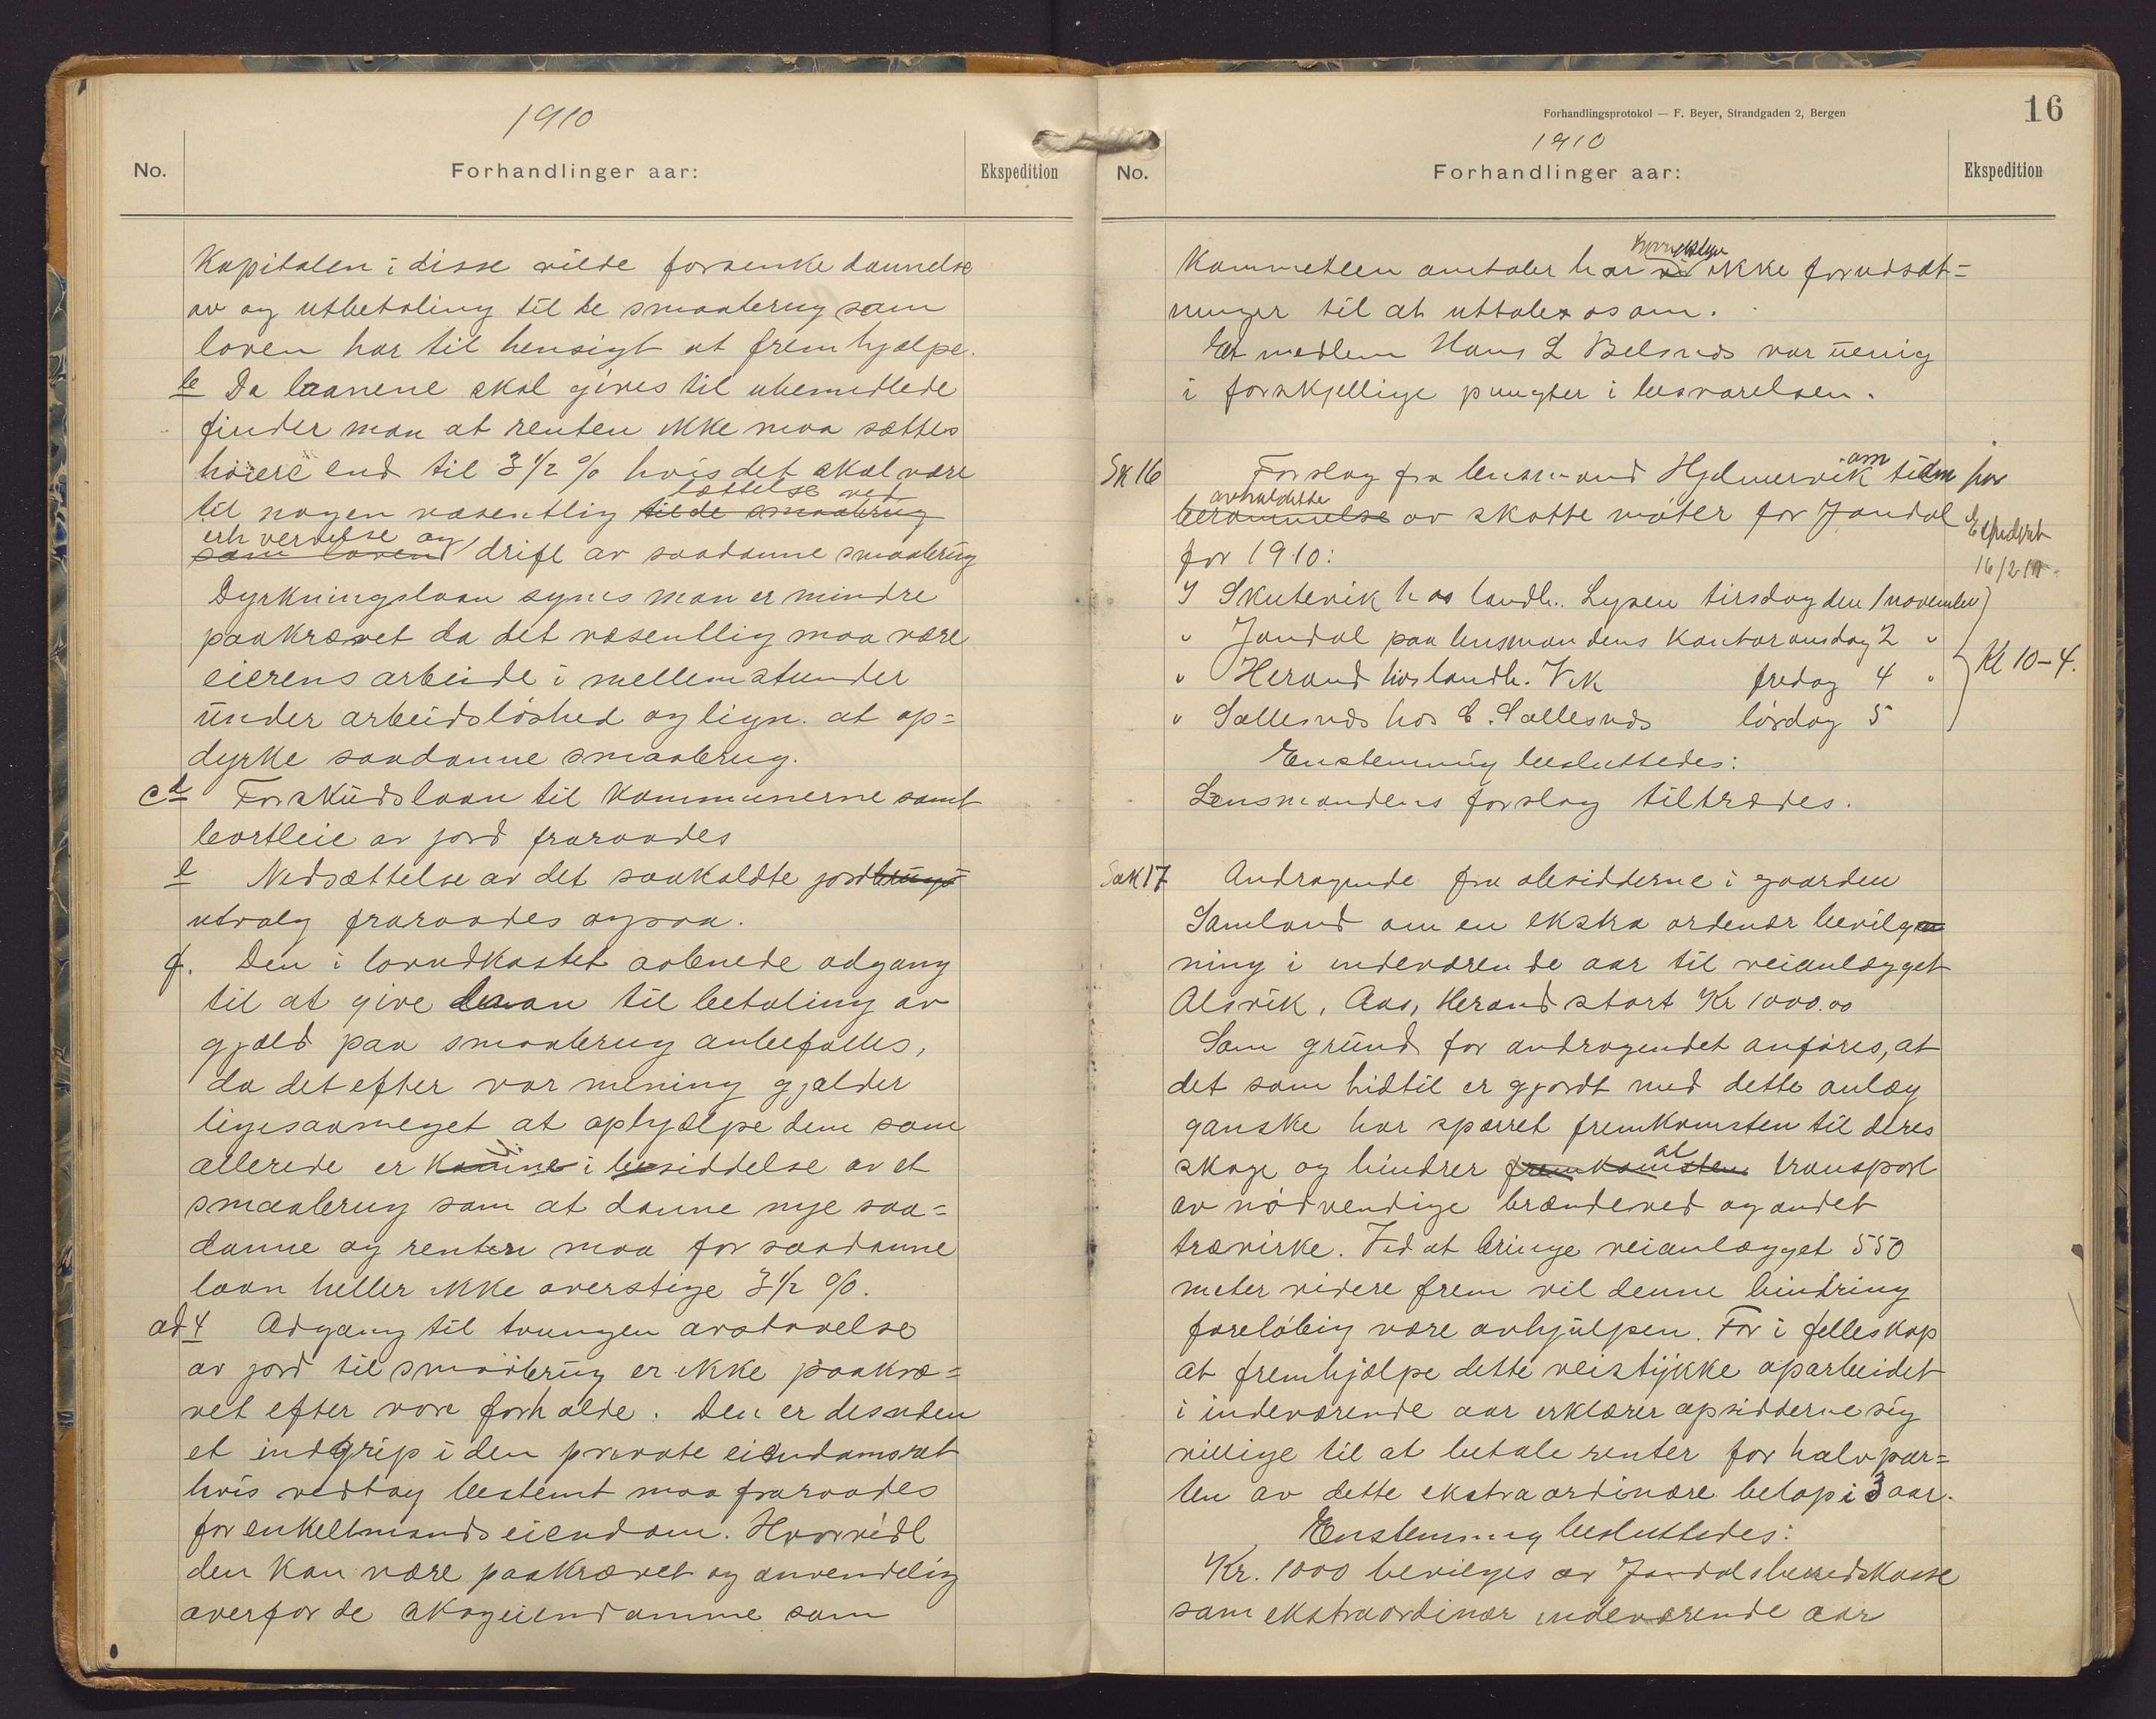 1910
No. Forhandlinger aar: Ekspedition
Kapitalen i disse vilde forsenke dannelse
av og utbetaling til de smaabrug som
loven har til hensigt at fremhjælpe.
b Da laanene skal gives til ubemidlede
finder man at renten ikke maa sættes
høiere end til 3 1/2 % hvis det skal være
lættelse ved
til nogen væsentlig til de smaabrug
erhvervelse og
som loven drift av saadanne smaabrug
Dyrkningslaan synes man er mindre
paakrævet da det væsentlig maa være
eierens arbeide i mellemstunder
under arbeidsløshed og lign. at op=
dyrke saadanne smaabrug.
c d Forskudslaan til Kommunerne samt
bortleie av jord fraraades
e Nedsættelse av det saakaldte jordbrugs
utvalg fraraades ogsaa.
f. Den i lovudkastet aabnede adgang
til at give laan til betaling av
gjæld paa smaabrug anbefalles,
da det efter vor mening gjælder
ligesaameget at ophjælpe dem som
allerede er komne i besiddelse av et
smaabrug som at danne nye saa=
danne og renten maa for saadanne
laan heller ikke overstige 3 1/2 %.
ad 4 Adgang til tvungen avstaaelse
av jord til smaabrug er ikke paakræ=
vet efter vore forholde. Den er desuden
et indgrip i den private eiendomsret
hvis vedtag bestemt maa fraraades
for enkeltmands eiendom. Hvorvidt
den kan være paakrævet og anvendelig
overfor de skogeiendomme som
Forhandlingsprotokol — F. Beyer, Strandgaden 2, Bergen
16
1910
No. Forhandlinger aar: Ekspedition
Kommeteen omtaler har vi ikke forudsæt=
ninger til at uttale os om.
Et medlem Hans L Belsnes var uenig
i forskjellige pungter i besvarelsen.
Sk 16 Forslag fra lensmand Hjelmervik om tiden for
avholdelse
berammelse av skatte møter for Jondal
Expedert
for 1910:
16/2 10.
I Skutevik hos landh. Lysen tirsdag den 1 november
" Jondal paa lensmandens kontor onsdag 2 "
Kl 10-4.
" Herand hos landh. Vik fredag 4 "
" Sællesnes hos E. Sællesnes lørdag 5
Enstemmig besluttedes:
Lensmandens forslag tiltrædes.
Sak 17 Andragende fra obsidderne i gaarden
Samland om en ekstra ordenær bevilg
ning i indeværende aar til veianlægget
Alsvik, Aas, Herand stort Kr 1000.00
Som grund for andragendet anføres, at
det som hidtil er gjordt med dette anlæg
ganske har spærret fremkomsten til deres
al
skoge og hindrer fremkomsten transport
av nødvendige brændeved og andet
trævirke. Ved at bringe veianlægget 550
meter videre frem vil denne hindring
foreløbig være avhjulpen. For i felleskap
at fremhjælpe dette veistykke oparbeidet
i indeværende aar erklærer opsidderne sig
villige til at betale renter for halvpar=
ten av dette ekstraordinære beløp i 3 aar.
Enstemmig besluttedes:
Kr. 1000 bevilges av Jondals heredskasse
som ekstraordinær indeværende aar